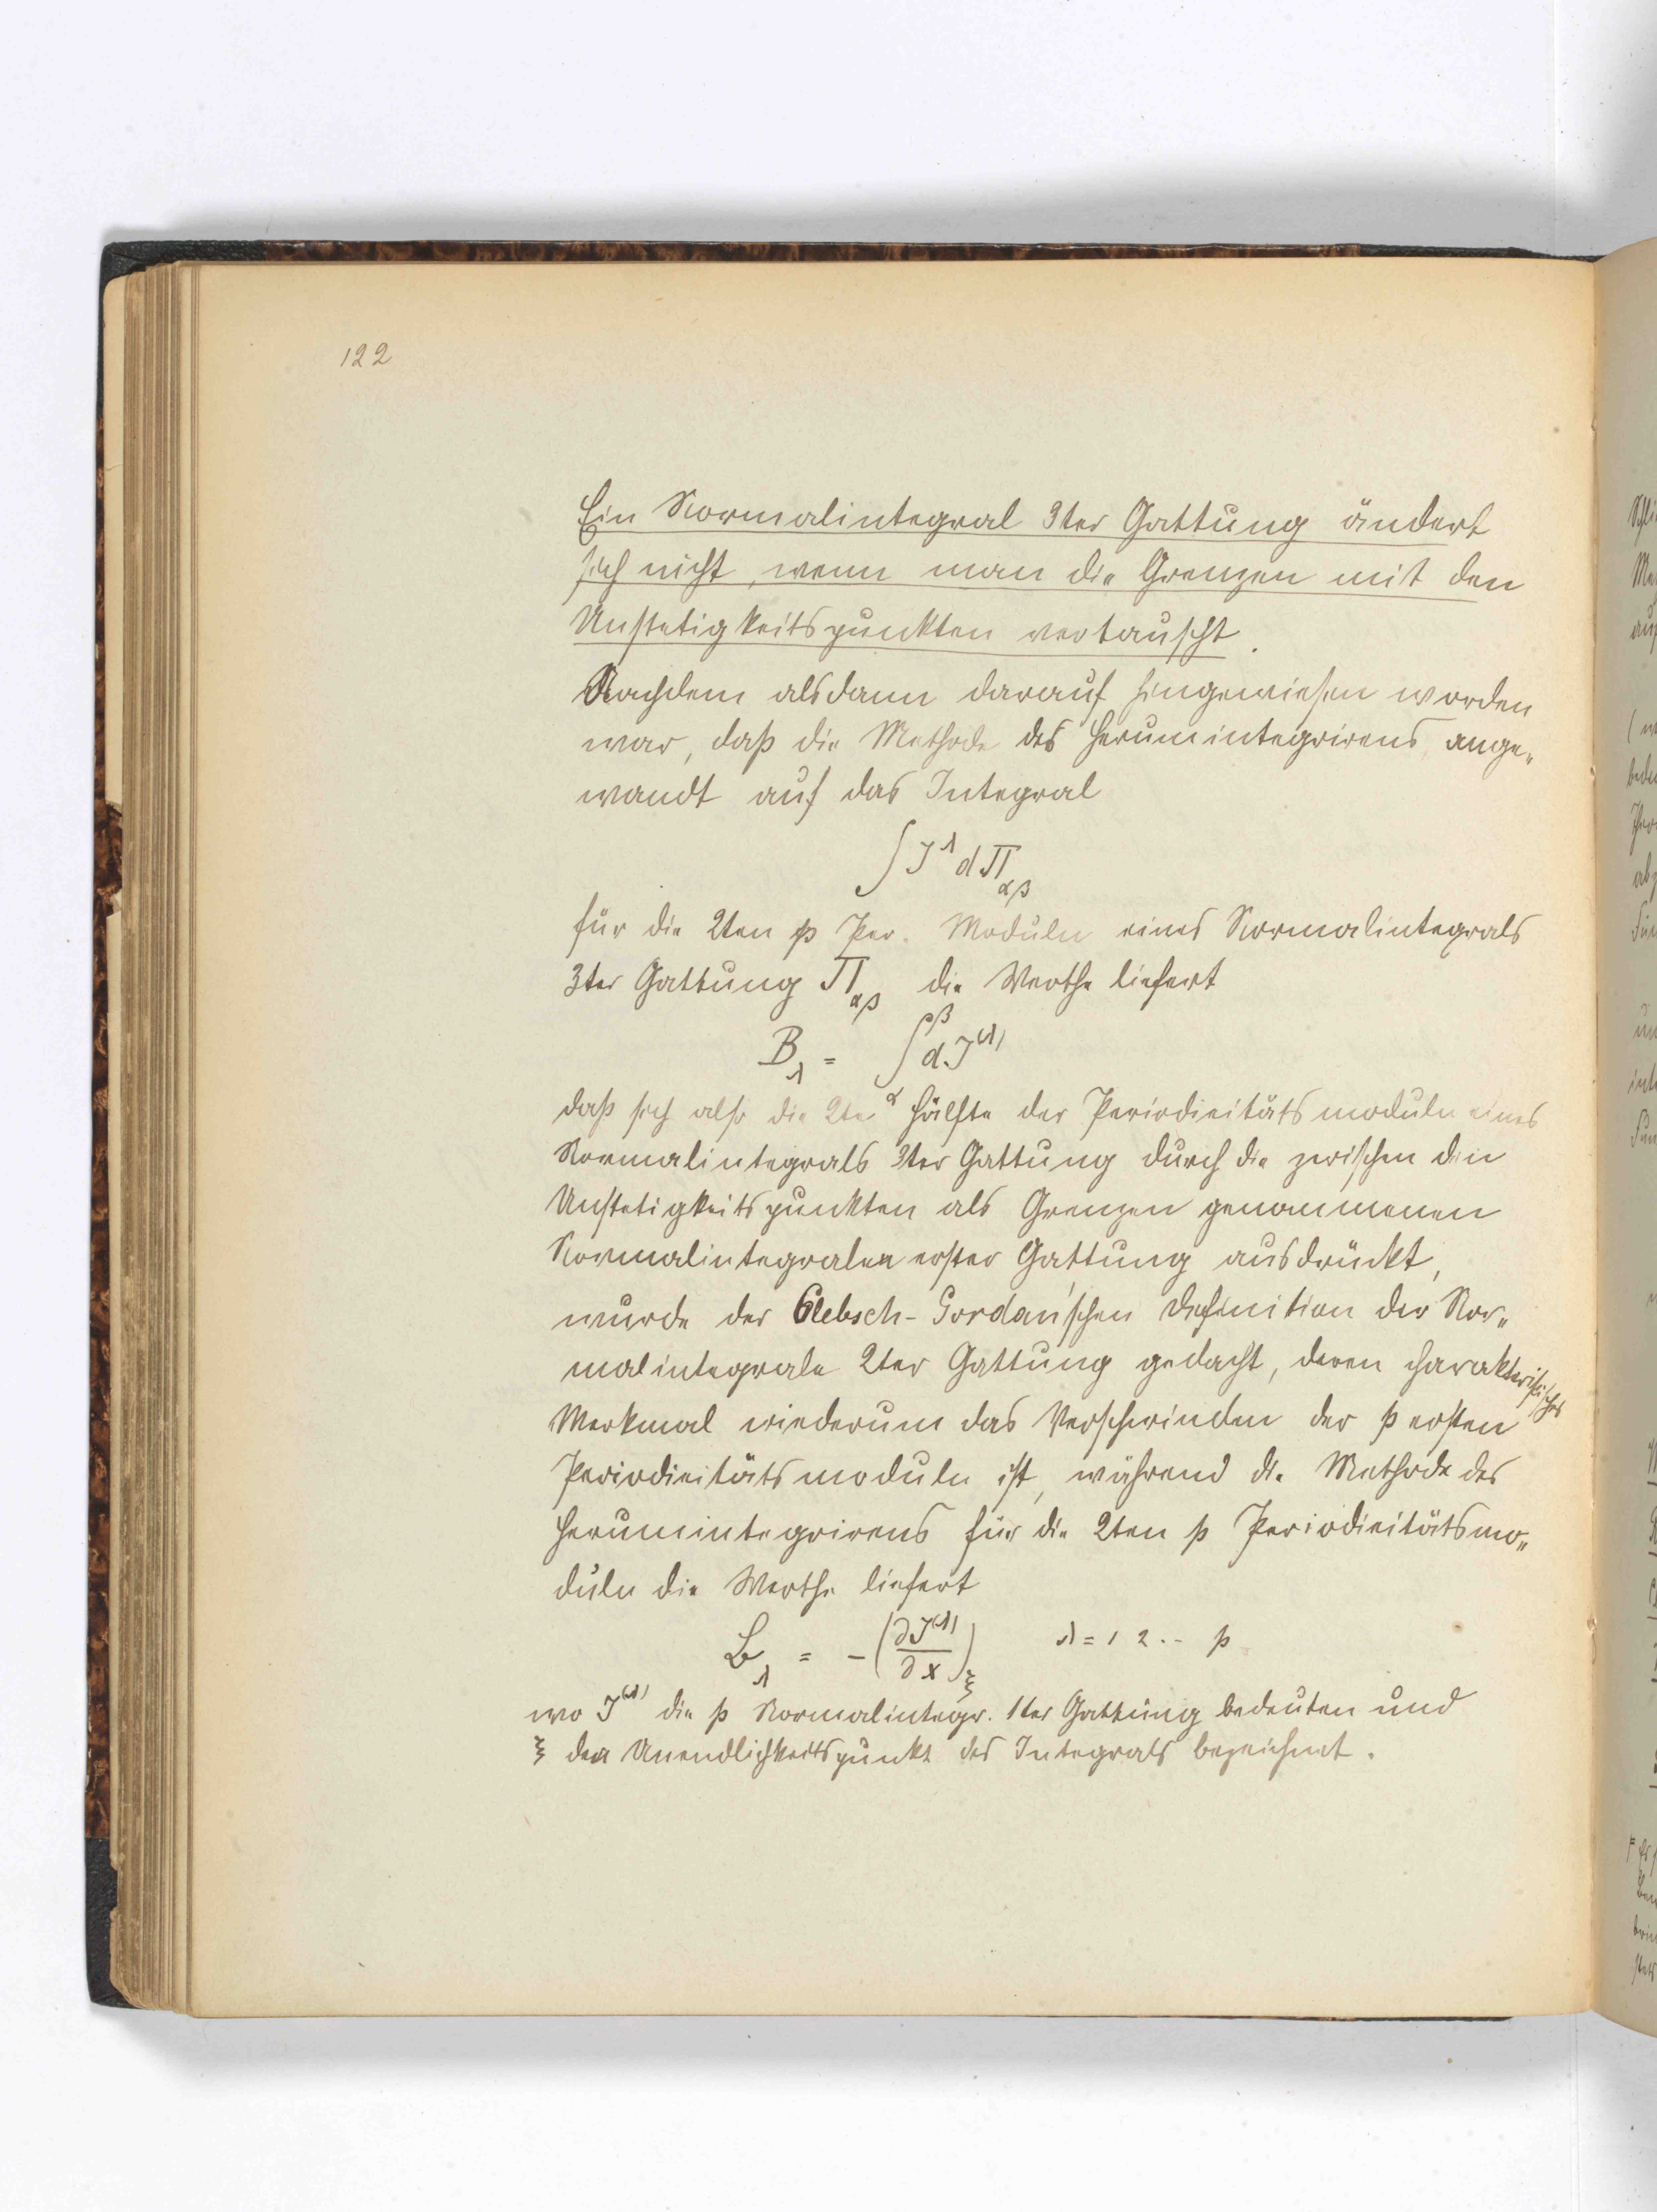 122
Ein Normalintegral 3ter Gattung ändert
sich nicht, wenn man die Grenzen mit den
Unstetigkeitspunkten vertauscht.
Nachdem alsdann darauf hingewiesen worden
war, daß die Methode des Herumintegrirens, ange„
wandt auf das Integral
∫ J^λ dΠ_αβ
für die 2ten p Per. Moduln eines Normalintegrals
3ter Gattung Π_αβ die Werthe liefert
B_λ = ∫_α^β dJ^(λ)
daß sich also die 2te Hälfte der Periodicitätsmoduln eines
Normalintegrals 3ter Gattung durch die zwischen den
Unstetigkeitspunkten als Grenzen genommenen
Normalintegralen erster Gattung ausdrückt,
wurde der Clebsch-Gordan'schen Definition der Nor„
malintegrale 2ter Gattung gedacht, deren charakteristisches
Merkmal wiederum das Verschwinden der p ersten
Periodicitätsmoduln ist, während die Methode des
Herumintegrirens für die 2ten p Periodicitätsmo„
duln die Werthe liefert
B_λ = -(∂J^(λ)/∂x)_ξ λ = 1 2 .. p
wo J^(λ) die p Normalintegr. 1ter Gattung bedeuten und
ξ den Unendlichkeitspunkt des Integrals bezeichnet.